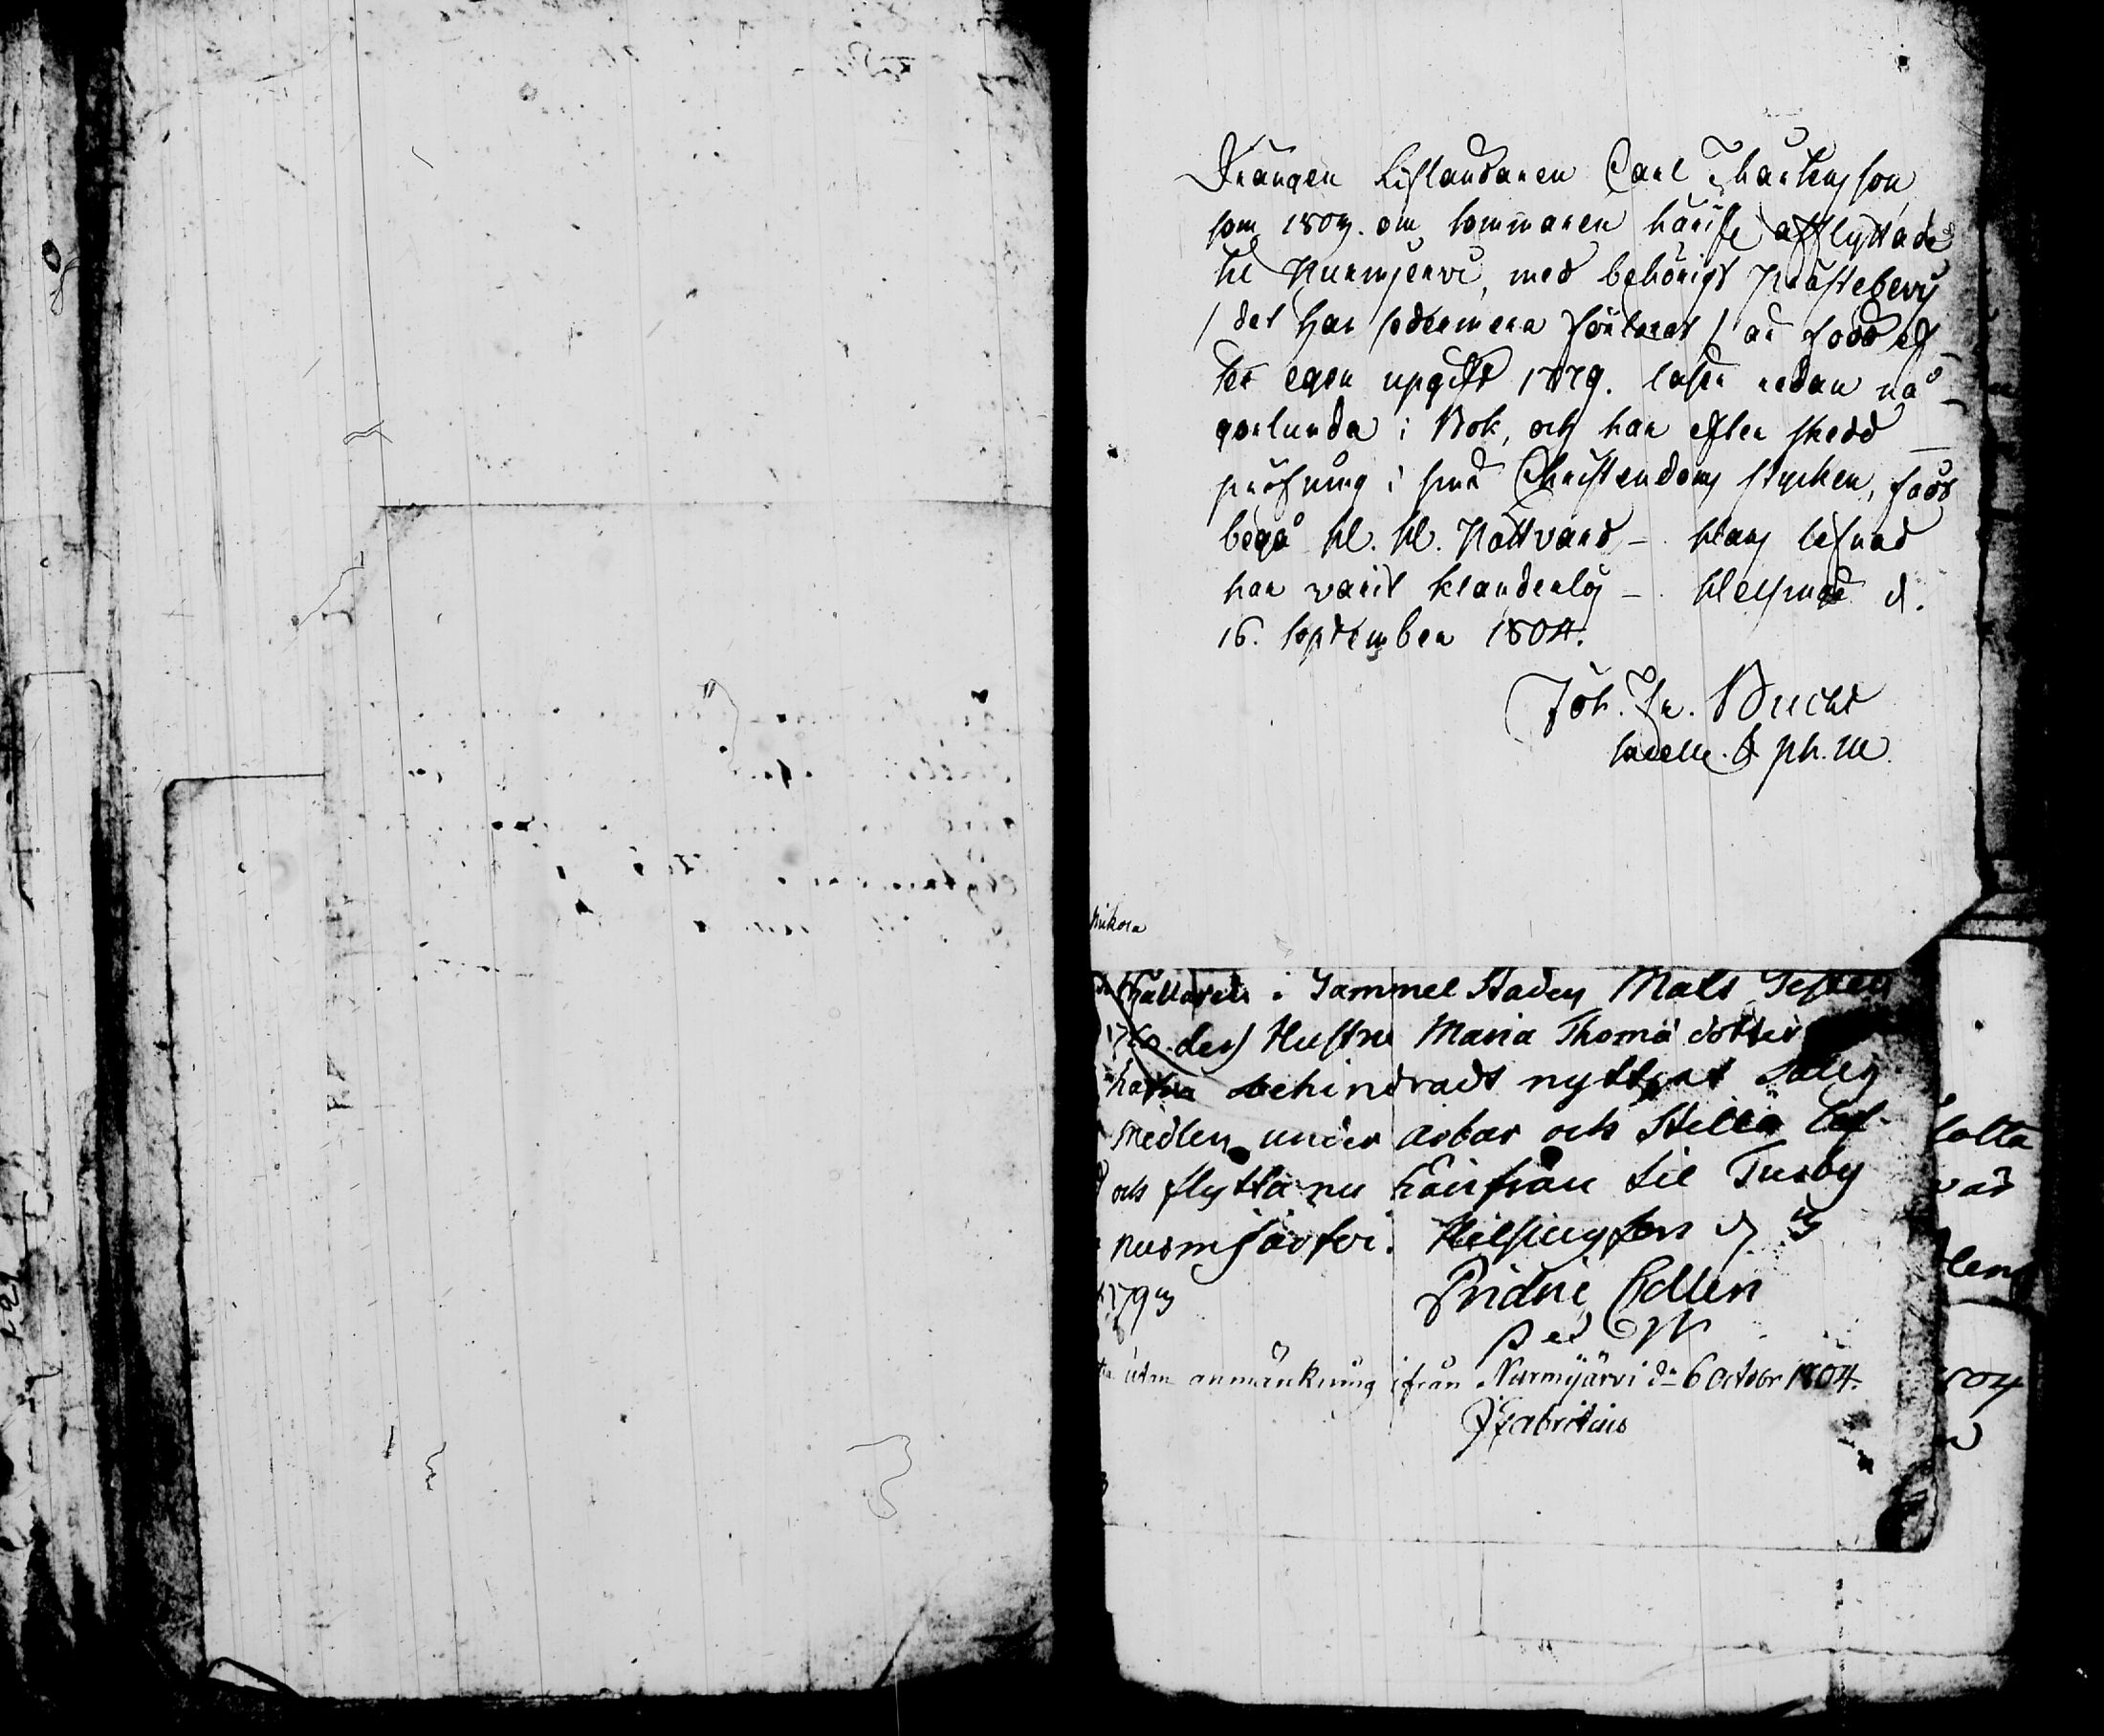 Drängen Liflandaren Carl Thartensson,
som 1803. om sommaren härifr. afflyttade
til Nurmjervi, med behörigt Prästebevis
/ det han sedermera förlorat / är född ef-
ter egen upgift 1779. läser redan nå-
gorlunda i Bok, och har efter skedd
pröfning i sina Christendoms stycken, fått
begå H. H. Nattvard - Hans lefnad
har varit klanderlös - Helsinge d.
16. September 1804.
Joh. Fr. Bucht
Sacell. & ph. M.
Nukora
hållaren i Gammel Staden Mats
des Hustru Maria Thomä dotter
hafva obehindradt nyttjat Salig
Medlen under ärbar och stilla lef-
och flytta nu härifrån til Tusby
nurmijärfvi. Helsingfors d. 3
179
Fridric Edlen
Past
utan anmärkning ifrån Nurmijärvi dn 6 October 1804.
Fabritius
lotta
1804